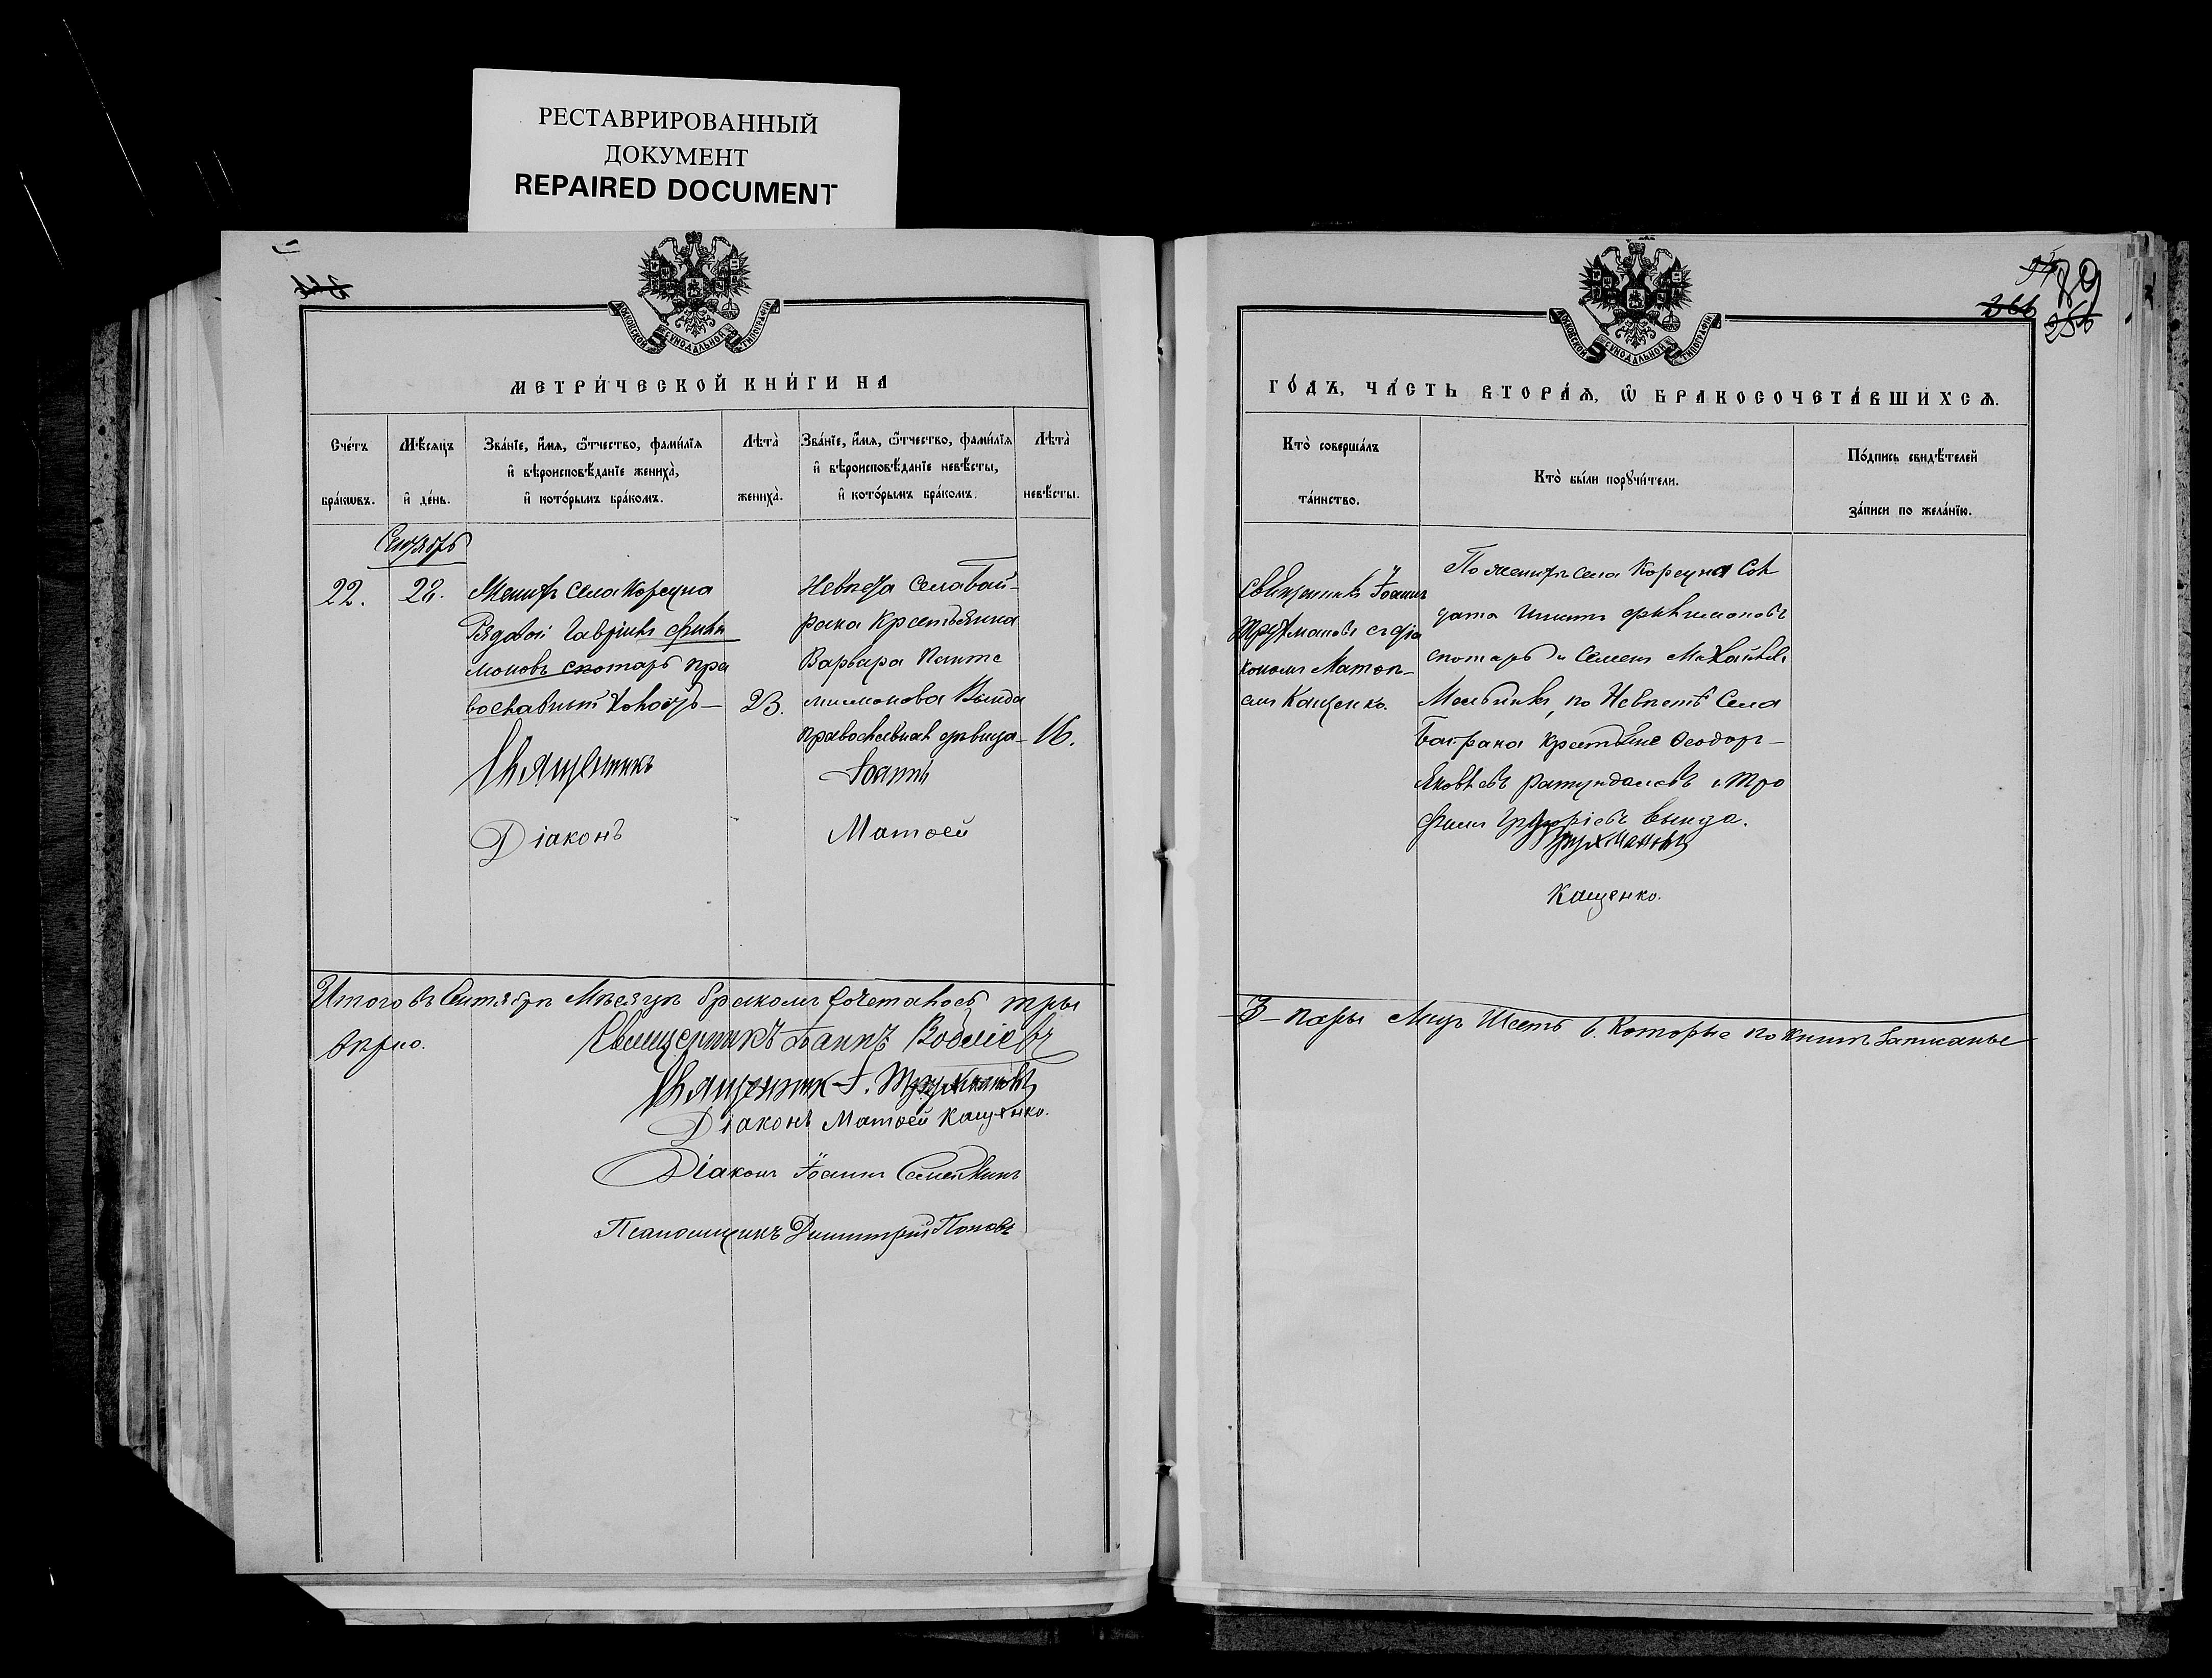 РЕСТАВРИРОВАННЫЙ
ДОКУМЕНТ
REPAIRED DOCUMENT
МОСКОВСКОЙ СѴНОДАЛЬНОЙ ТИПОГРАФІИ
МЕТРИ́ЧЕСКОЙ КНИ́ГИ НА
Сче́тъ бра́кωвъ.
Мѣ́сяцъ и҆ де́нь.
Зва́нїе, и҆́мя, ѻ҆́тчество, фами́лїя
и҆ вѣроисповѣ́данїе жениха̀,
и҆ кото́рымъ бра́комъ.
Лѣта̀ жениха̀.
Зва́нїе, и҆́мя, ѻ҆́тчество, фами́лїя
и҆ вѣроисповѣ́данїе невѣ́сты,
и҆ кото́рымъ бра́комъ.
Лѣта̀ невѣ́сты.
Сентябрь
22.
28.
Женихъ села Корсуна
Рядовой Гавріилъ Фили
моновъ скотарь пра
вославный холостъ
23.
Невѣста Села Бай-
рака Крестьянка
Варвара Панте
лимонова Вьинда
православная дѣвица
16.
Священникъ Іоаннъ
Діаконъ Матѳей
Итого въ Сентябрѣ Мѣсяцѣ бракомъ сочеталось три
вѣрно.
Священникъ Іоаннъ
Священник І. Трухмановъ
Діаконъ Матѳей Кащенко.
Діаконъ Іоаннъ
Псаломщикъ Димитрій Поповъ
МОСКОВСКОЙ СѴНОДАЛЬНОЙ ТИПОГРАФІИ
89
266
256
ГО́ДЪ, ЧА́СТЬ ВТОРА́Ѧ, Ѡ҆ БРАКОСОЧЕТА́ВШИХСѦ.
Кто̀ соверша́лъ
та́инство.
Кто̀ бы́ли порꙋчи́тели.
По́дпись свидѣ́телей
за́писи по жела́нїю.
Священникъ Іоаннъ
Трухмановъ съ діа
кономъ Матѳе-
емъ Кащенко.
По женихѣ села Корсуна Сол
дата Игнатъ Филимоновъ
скотарь и Семенъ Михайлов.
Мельникъ, по Невѣстѣ Села
Байрака крестьяне Ѳеодоръ
Яковлевъ и Тро
фимъ Григоріевъ Вьинда.
Трухмановъ
Кащенко.
3 - пары Лицъ Шесть 6. Которые по книгѣ записаны